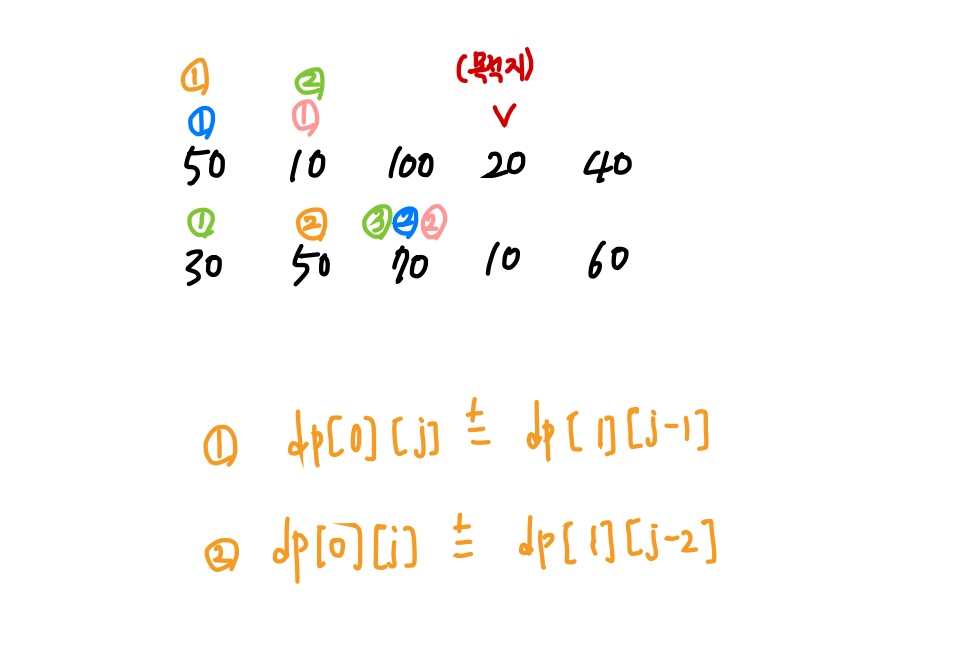 ① ② (목적지)
① ① V
50 10 100 20 40
① ② ③ ② ②
30 50 70 10 60
① dp[0][j] ±= dp[1][j-1]
② dp[0][j] ±= dp[1][j-2]